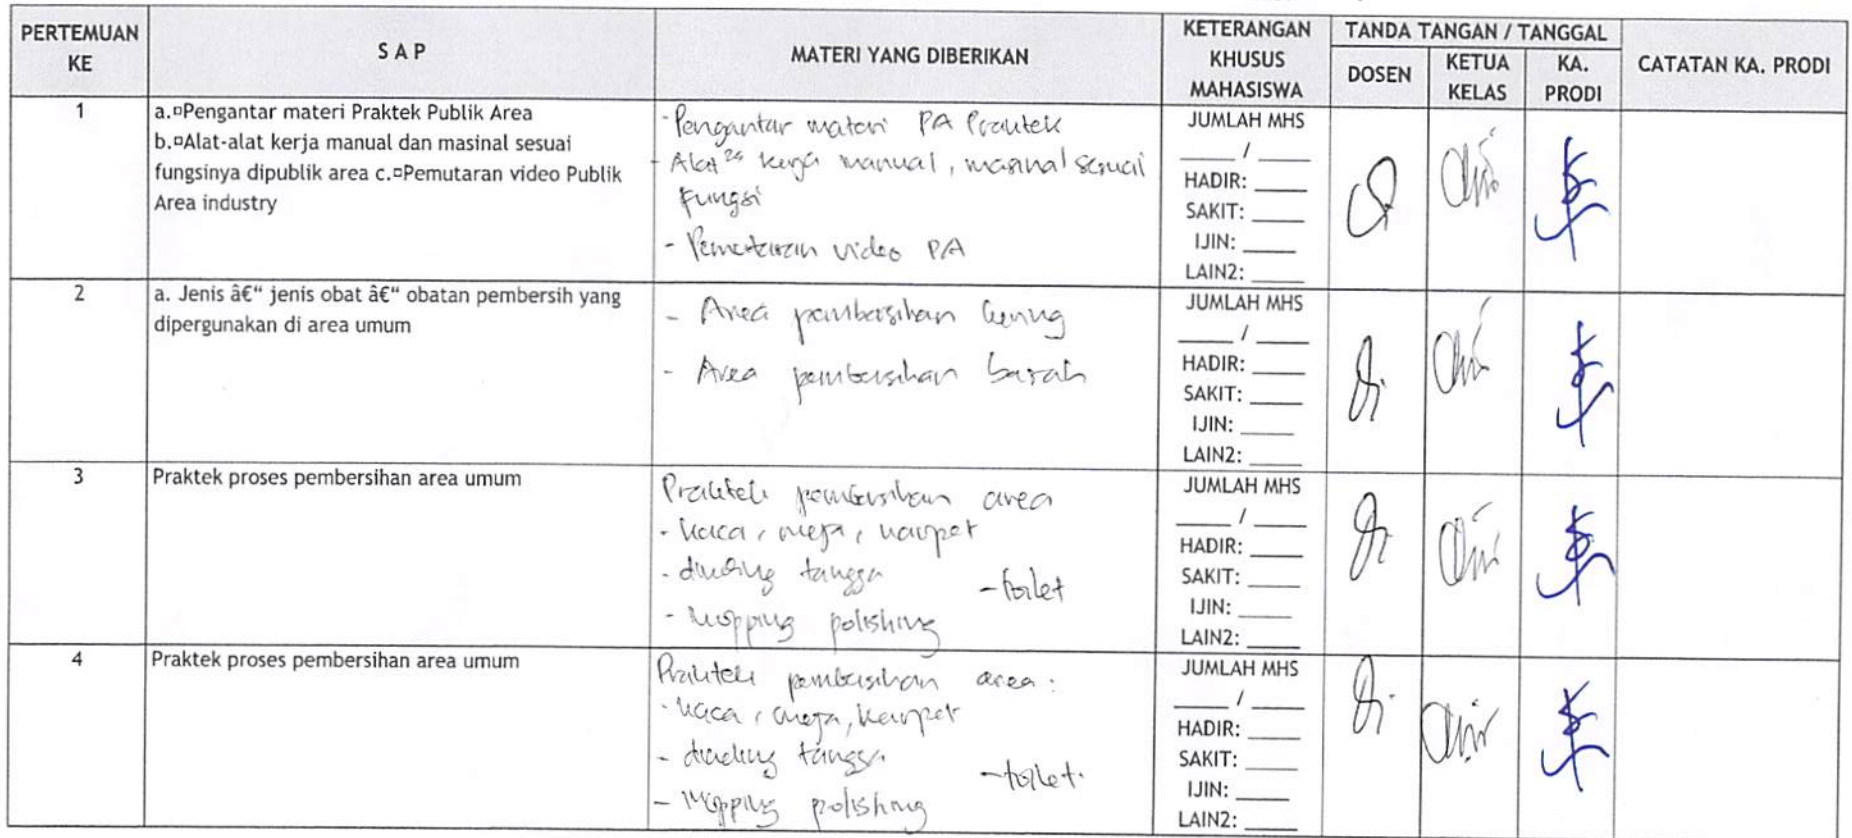 PERTEMUAN KE
S A P
MATERI YANG DIBERIKAN
KETERANGAN KHUSUS MAHASISWA
TANDA TANGAN / TANGGAL
DOSEN
KETUA KELAS
KA. PRODI
CATATAN KA. PRODI
1
a.¤Pengantar materi Praktek Publik Area
b.¤Alat-alat kerja manual dan masinal sesuai
fungsinya dipublik area c.¤Pemutaran video Publik
Area industry
- Pengantar materi PA Praktek
- Alat 2an kerja manual, masinal sesuai
fungsi
- Pemutaran video PA
JUMLAH MHS
____ / ____
HADIR: ____
SAKIT: ____
IJIN: ____
LAIN2: ____
2
a. Jenis â€“ jenis obat â€“ obatan pembersih yang
dipergunakan di area umum
- Area pembersihan kering
- Area pembersihan basah
JUMLAH MHS
____ / ____
HADIR: ____
SAKIT: ____
IJIN: ____
LAIN2: ____
3
Praktek proses pembersihan area umum
Praktek pembersihan area
- kaca, meja, karpet
- dinding tangga
- toilet
- Mopping polishing
JUMLAH MHS
____ / ____
HADIR: ____
SAKIT: ____
IJIN: ____
LAIN2: ____
4
Praktek proses pembersihan area umum
Praktek pembersihan area :
- kaca, meja, karpet
- dinding tangga
- toilet.
- Mopping polishing
JUMLAH MHS
____ / ____
HADIR: ____
SAKIT: ____
IJIN: ____
LAIN2: ____